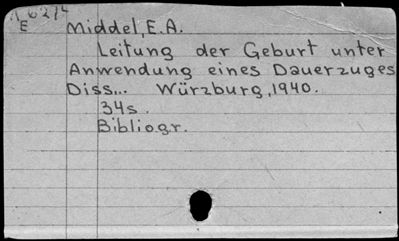 E Middel, E.A.
Leitung der Geburt unter
Anwendung eines Dauerzuges
Diss... Würzburg, 1940.
34s.
Bibliogr.